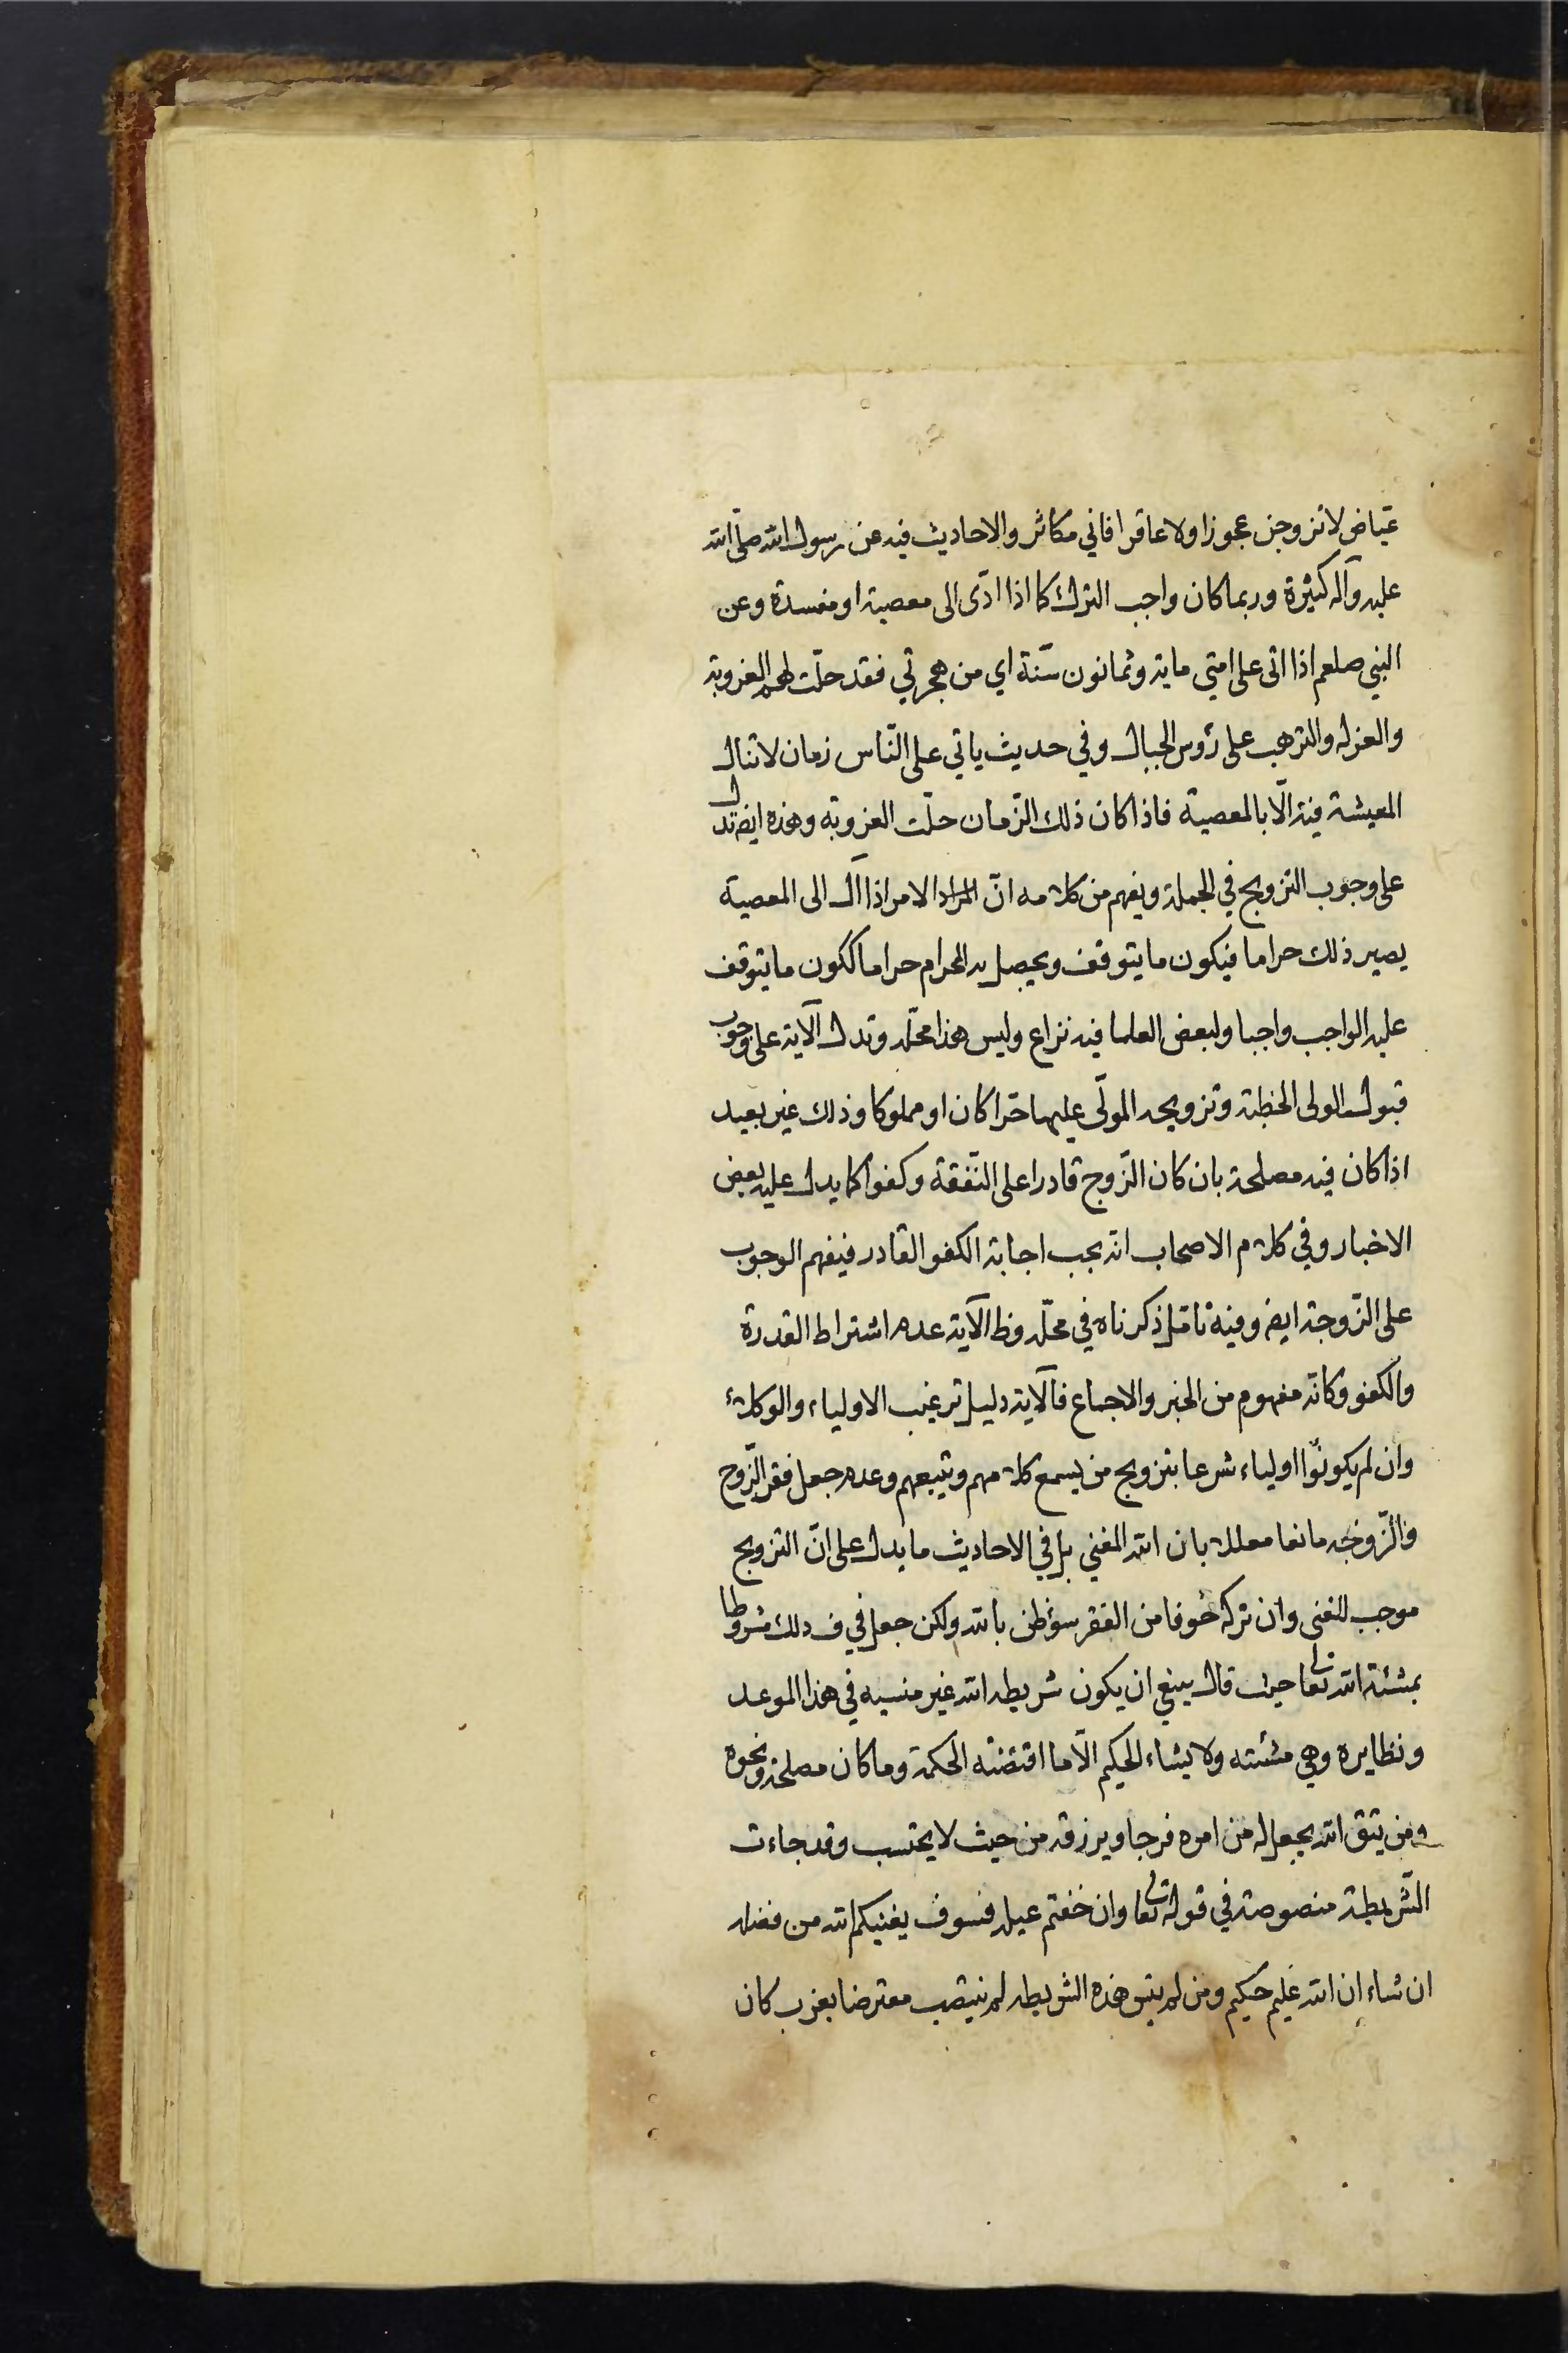 عياض لا تزوجن عجوزا ولا عاقرا فاني مكاثر والاحاديث فيه عن رسول الله صلى الله
عليه وآله كثيرة وربما كان واجب الترك كما اذا ادّى الى معصية او مفسدة وعن
النبي صلعم اذا اتى على امتي ماية وثمانون سنة اي من هجرتي فقد حلّت لهم العزوبة
والعزلة والترهب على رؤس الجبال وفي حديث ياتي على النّاس زمان لا تنال
المعيشة فيه الّا بالمعصية فاذا كان ذلك الزّمان حلّت العزوبة وهذه ايضا تدل
على وجوب التزويج في الجملة ويفهم من كلامه انّ المراد الامر اذا آل الى المعصية
يصير ذلك حراما فيكون ما يتوقف ويحصل به الحرام حراما ككون ما يتوقف
عليه الواجب واجبا ولبعض العلما فيه نزاع وليس هذا محلّه وتدل الآية على وجوب
قبول الولى الخطبة وتزويجه المولّى عليها حرّا كان او مملوكا وذلك غير بعيد
اذا كان فيه مصلحة بان كان الزّوج قادرا على النّفقة وكفوا كما يدل عليه بعض
الاخبار وفي كلام الاصحاب انه يجب اجابة الكفو القادر فيفهم الوجوب
على الزّوجة ايضا وفيه تامّل ذكرناه في محلّه وظ الآية عدم اشتراط القدرة
والكفو وكانّه مفهوم من الخبر والاجماع فالآية دليل ترغيب الاولياء والوكلاء
وان لم يكونوا اولياء شرعا بتزويج من يسمع كلامهم ويتبعهم وعدم جعل فقر الزّوج
والزّوجه مانعا معللا بان الله المغني بل في الاحاديث ما يدل على انّ التزويج
موجب للغنى وان تركه خوفا من الفقر سؤظن بالله ولكن جعل في ف ذلك مشروطا
بمشئة الله تعالى حيث قال ينبغي ان يكون شريطه الله غير منسيه في هذا الموعد
ونظايره وهي مشئته ولا يشاء الحكيم الّا ما اقتضته الحكمة وما كان مصلحة ونحوه
ومن يتق الله يجعل له من امره فرجا ويرزقه من حيث لا يحتسب وقد جاءت
الشّريطة منصوصة في قوله تعالى وان خفتم عيلة فسوف يغنيكم الله من فضله
ان شاء ان الله عليم حكيم ومن لم ينس هذه الشريطه لم ينتصب معترضا بعزب كان